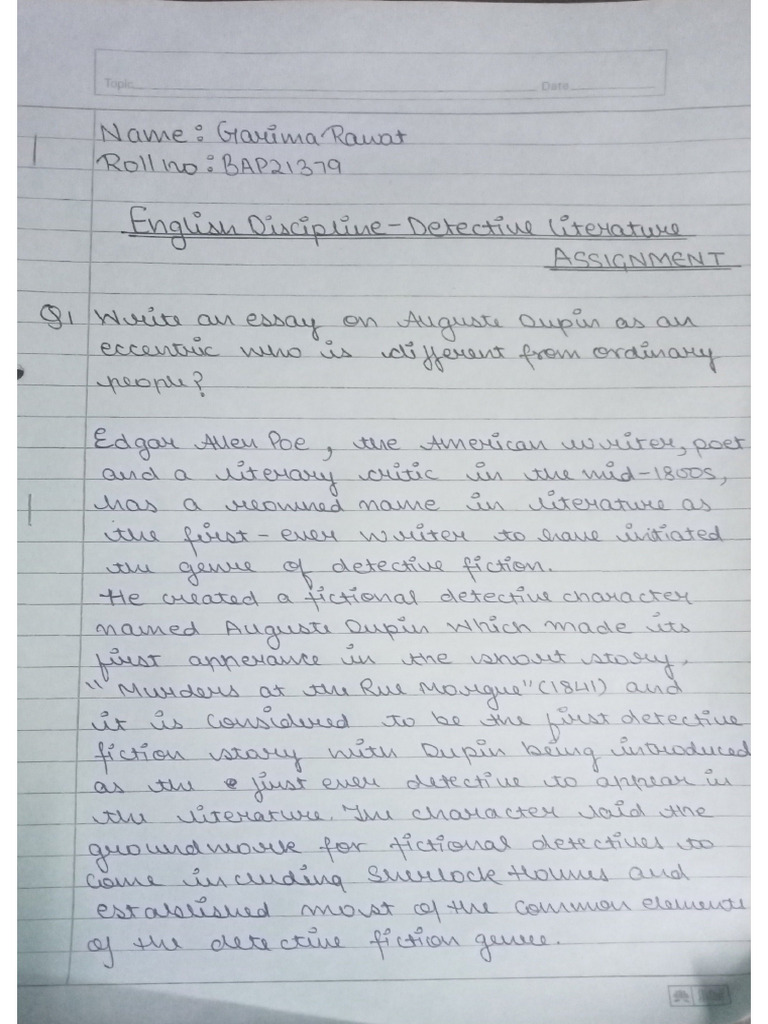 Topic Date
Name: Garima Rawat
Roll no: BAP21379
English Discipline - Detective Literature
ASSIGNMENT
Q1 Write an essay on Auguste Dupin as an
eccentric who is different from ordinary
people?
Edgar Allen Poe, the American writer, poet
and a literary critic in the mid-1800s,
has a reowned name in literature as
the first-ever writer to have initiated
the genre of detective fiction.
He created a fictional detective character
named Auguste Dupin which made its
first apperance in the short story,
"Murders at the Rue Morgue" (1841) and
it is considered to be the first detective
fiction story with Dupin being introduced
as the first ever detective to appear in
the literature. The character laid the
groundwork for fictional detectives to
come including Sherlock Holmes and
established most of the common elements
of the detective fiction genre.